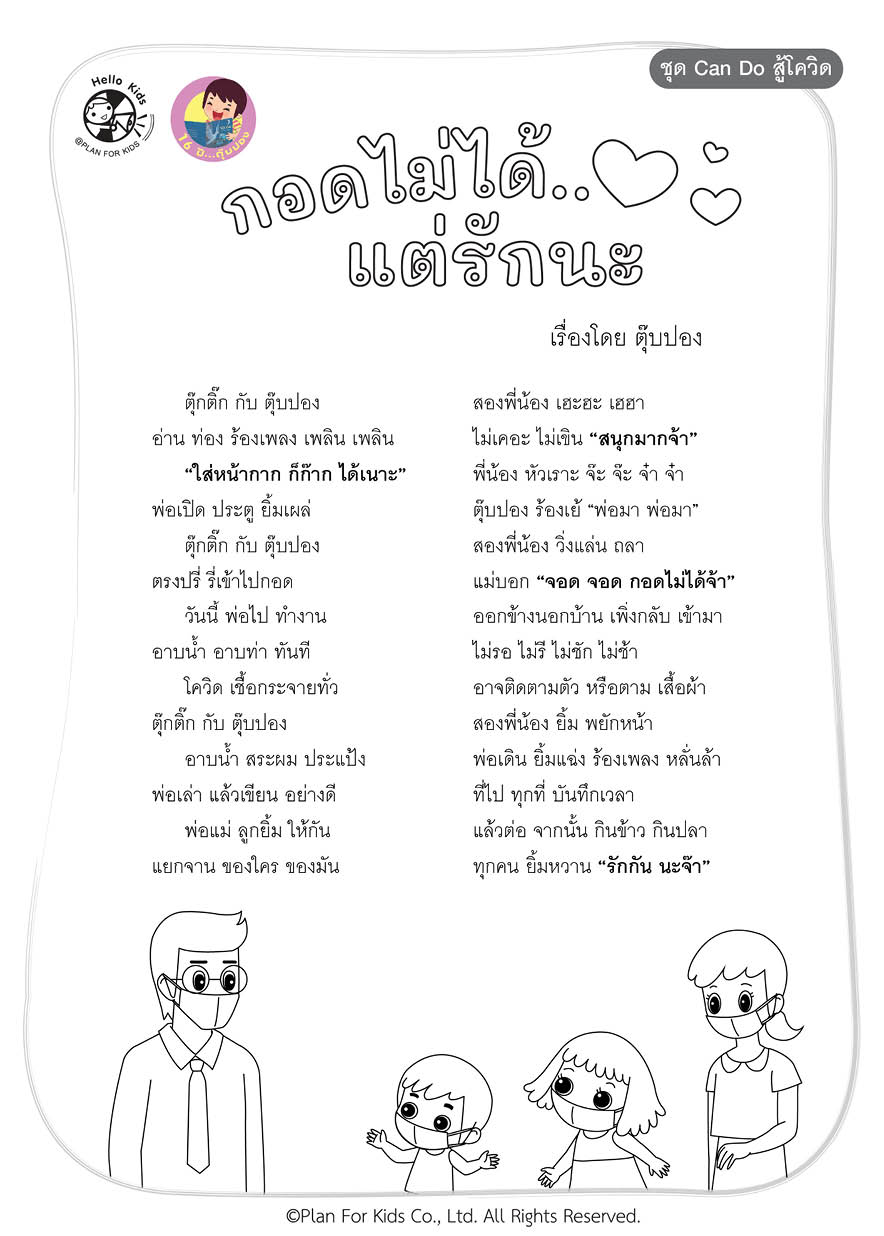 ชุด Can Do สู้โควิด
Hello Kids
@PLAN FOR KIDS
16 ปี...ตุ๊บปอง
กอดไม่ได้..
แต่รักนะ
เรื่องโดย ตุ๊บปอง
ตุ๊กติ๊ก กับ ตุ๊บปอง สองพี่น้อง เฮะฮะ เฮฮา
อ่าน ท่อง ร้องเพลง เพลิน เพลิน ไม่เคอะ ไม่เขิน “สนุกมากจ้า”
“ใส่หน้ากาก ก็ก๊าก ได้เนาะ” พี่น้อง หัวเราะ จ๊ะ จ๊ะ จ๋า จ๋า
พ่อเปิด ประตู ยิ้มเผล่ ตุ๊บปอง ร้องเย้ “พ่อมา พ่อมา”
ตุ๊กติ๊ก กับ ตุ๊บปอง สองพี่น้อง วิ่งแล่น ถลา
ตรงปรี่ รี่เข้าไปกอด แม่บอก “จอด จอด กอดไม่ได้จ้า”
วันนี้ พ่อไป ทำงาน ออกข้างนอกบ้าน เพิ่งกลับ เข้ามา
อาบน้ำ อาบท่า ทันที ไม่รอ ไม่รี ไม่ชัก ไม่ช้า
โควิด เชื้อกระจายทั่ว อาจติดตามตัว หรือตาม เสื้อผ้า
ตุ๊กติ๊ก กับ ตุ๊บปอง สองพี่น้อง ยิ้ม พยักหน้า
อาบน้ำ สระผม ประแป้ง พ่อเดิน ยิ้มแฉ่ง ร้องเพลง หลั่นล้า
พ่อเล่า แล้วเขียน อย่างดี ที่ไป ทุกที่ บันทึกเวลา
พ่อแม่ ลูกยิ้ม ให้กัน แล้วต่อ จากนั้น กินข้าว กินปลา
แยกจาน ของใคร ของมัน ทุกคน ยิ้มหวาน “รักกัน นะจ๊ะ”
©Plan For Kids Co., Ltd. All Rights Reserved.